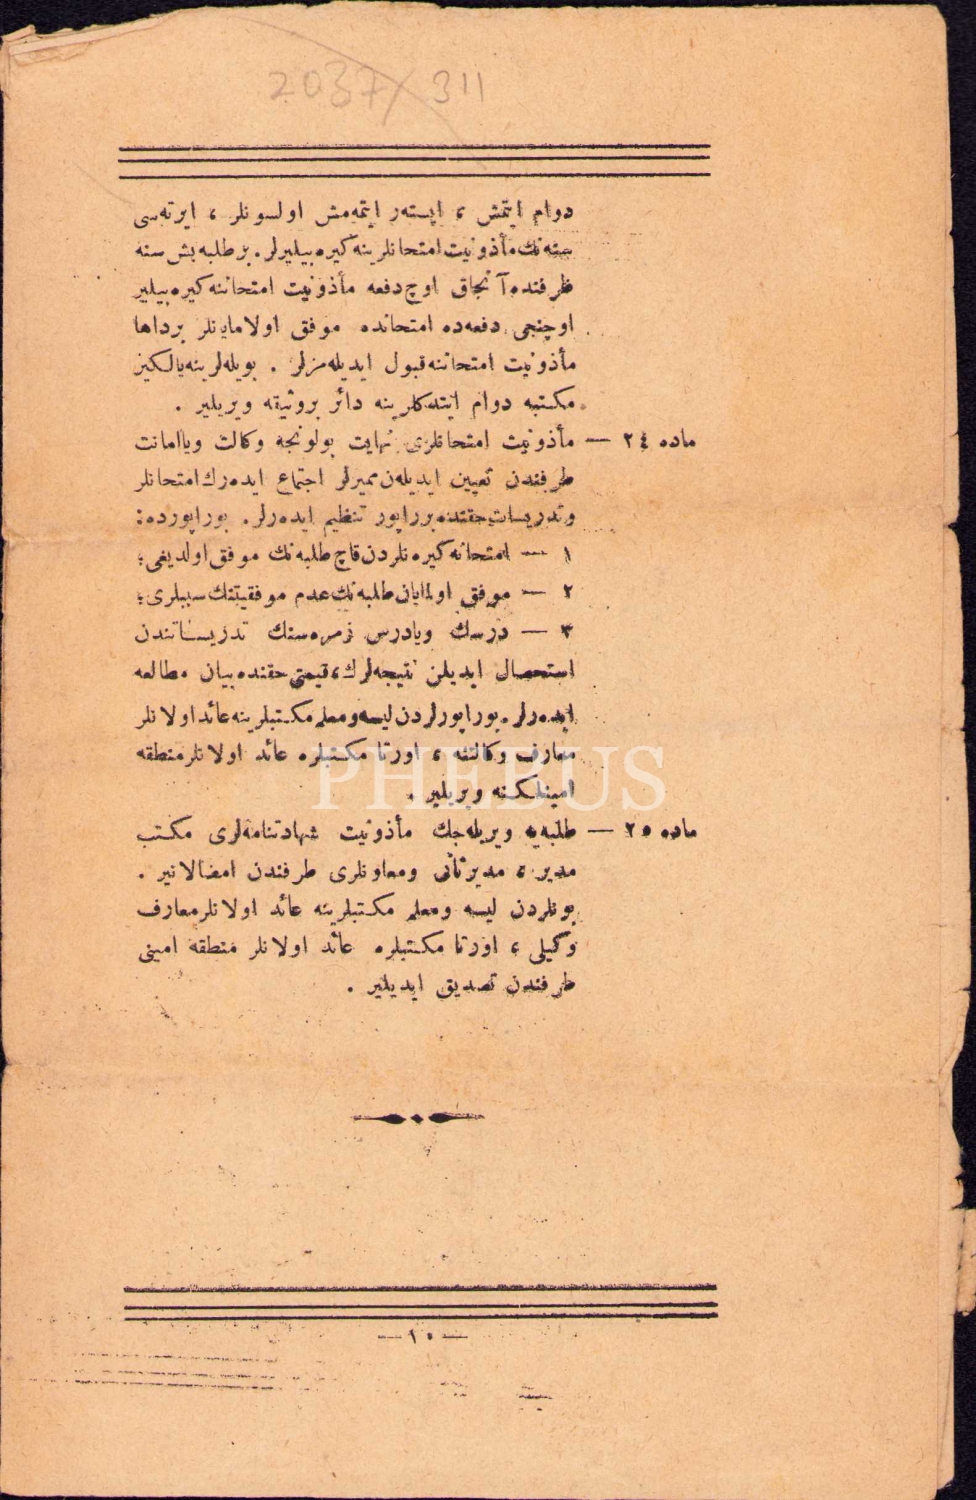 2037/311
دوام ایتمش ، ایستر ایتمه‌مش اولسونلر ، ایرته‌سی
سنه‌نك مأذونیت امتحانلرینه كیره‌بیلیرلر. بر طلبه بش سنه
ظرفنده آنجاق اوچ دفعه مأذونیت امتحاننه كیره‌بیلیر
اوچنجی دفعه‌ده امتحانده موفق اولامایانلر برداها
مأذونیت امتحاننه قبول ایدیله‌مزلر . بویله‌لرینه یالكیز
مكتبه دوام ایتدكلرینه دائر بروثیقه ویریلیر .
ماده ٢٤ — مأذونیت امتحانلری نهایت بولونجه وكالت ویاامانت
طرفندن تعیین ایدیله‌ن ممیزلر اجتماع ایده‌رك امتحانلر
وتدریسات حقنده برراپور تنظیم ایده‌رلر. بوراپورده :
١ — امتحانه كیره‌نلردن قاچ طلبه‌نك موفق اولدیغی ؛
٢ — موفق اولمایان طلبه‌نك عدم موفقیتنك سببلری ؛
٣ — درسك ویادرس زمره‌سنك تدریساتندن
استحصال ایدیلن نتیجه‌لرك ، قیمتی حقنده بیان مطالعه
ایده‌رلر. بوراپورلردن لیسه ومعلم مكتبلرینه عائد اولانلر
معارف وكالتنه ، اورتا مكتبلره عائد اولانلر منطقه
امینلكنه ویریلیر .
ماده ٢٥ — طلبه‌یه ویریله‌جك مأذونیت شهادتنامه‌لری مكتب
مدیر ، مدیرثانی ومعاونلری طرفندن امضالانیر .
بونلردن لیسه ومعلم مكتبلرینه عائد اولانلر معارف
وكیلی ، اورتا مكتبلره عائد اولانلر منطقه امینی
طرفندن تصدیق ایدیلیر .
PHEBUS
— ١٠ —